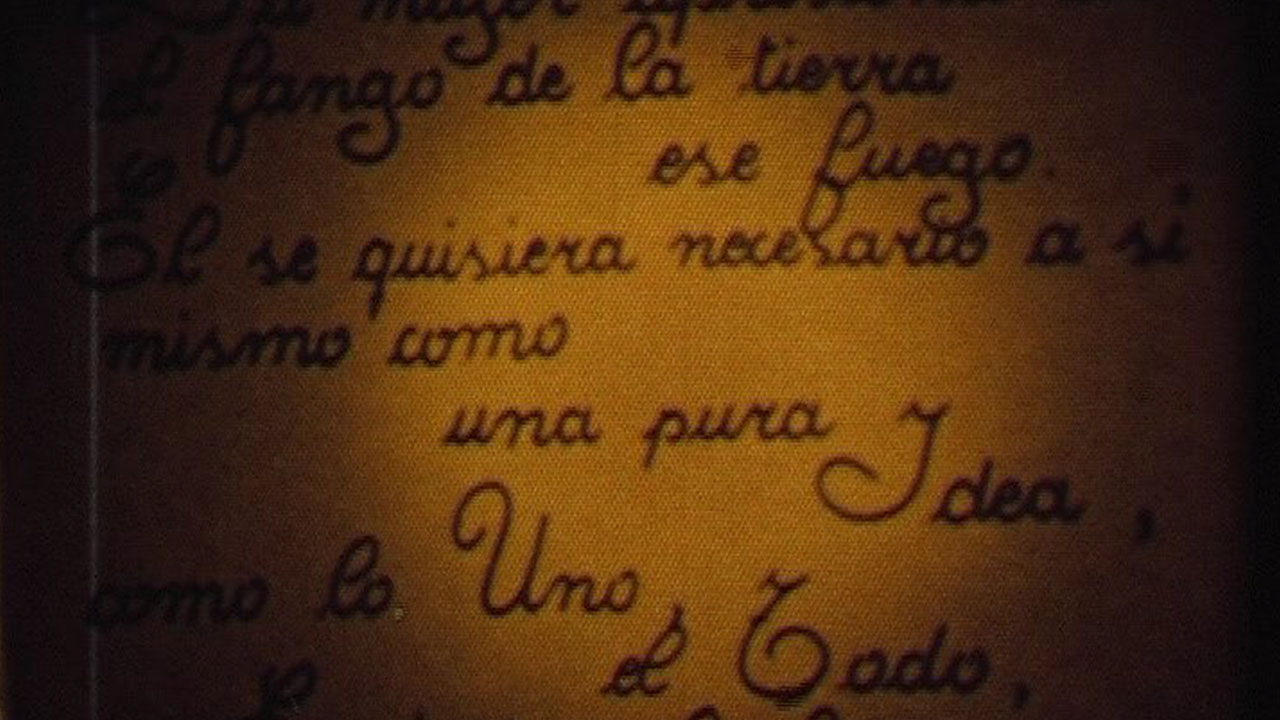 La mujer
el fango de la tierra
ese fuego.
El se quisiera necesario a si
mismo como
una pura Idea,
como lo Uno,
el Todo,